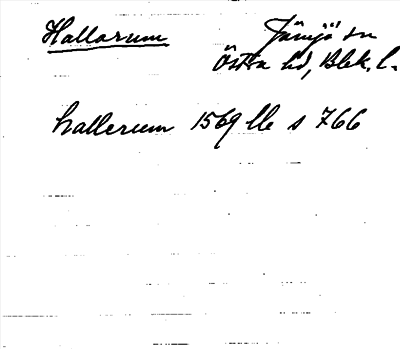 Hallarum Jämjö sn
Östra hd, Blek. l.
hallerum 1569 lle s 766